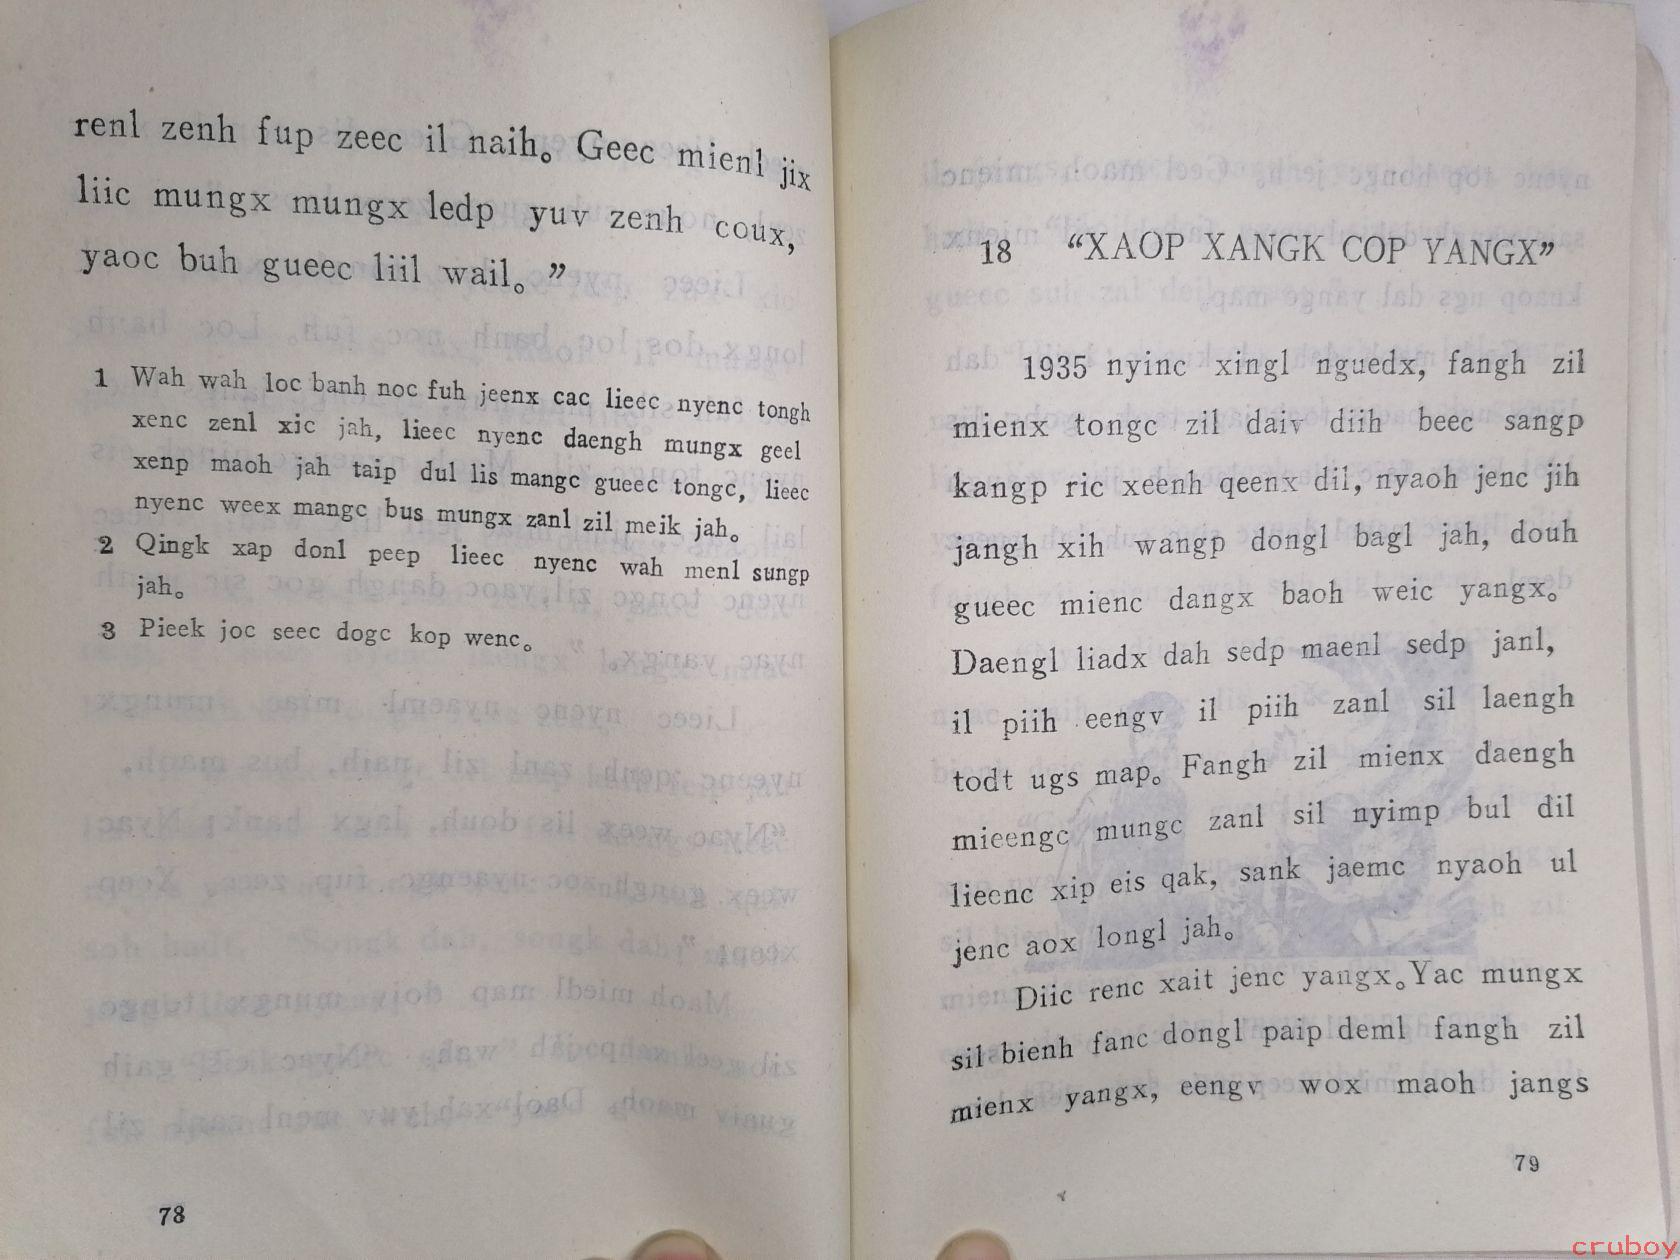 renl zenh fup zeec il naih。 Geec mienl jix
liic mungx mungx ledp yuv zenh coux,
yaoc buh gueec liil wail。”
1 Wah wah loc banh noc fuh jeenx cac lieec nyenc tongh
xenc zenl xic jah, lieec nyenc daengh mungx geel
xenp maoh jah taip dul lis mangc gueec tongc, lieec
nyenc weex mangc bus mungx zanl zil meik jah。
2 Qingk xap donl peep lieec nyenc wah menl sungp
jah。
3 Pieek joc seec dogc kop wenc。
78
18 “XAOP XANGK COP YANGX”
1935 nyinc xingl nguedx, fangh zil
mienx tongc zil daiv diih beec sangp
kangp ric xeenh qeenx dil, nyaoh jenc jih
jangh xih wangp dongl bagl jah, douh
gueec mienc dangx baoh weic yangx。
Daengl liadx dah sedp maenl sedp janl,
il piih eengv il piih zanl sil laengh
todt ugs map。 Fangh zil mienx daengh
mieengc mungc zanl sil nyimp bul dil
lieenc xip eis qak, sank jaemc nyaoh ul
jenc aox longl jah。
Diic renc xait jenc yangx。Yac mungx
sil bienh fanc dongl paip deml fangh zil
mienx yangx, eengv wox maoh jangs
79
cruboy